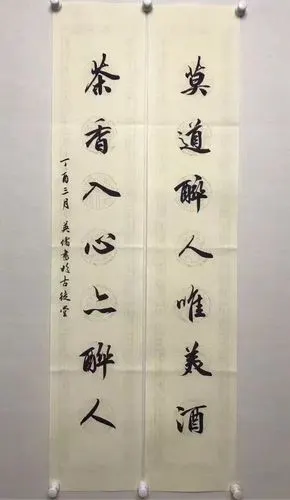 莫道醉人唯美酒
茶香入心亦醉人
丁酉三月 英儒书于古徒堂